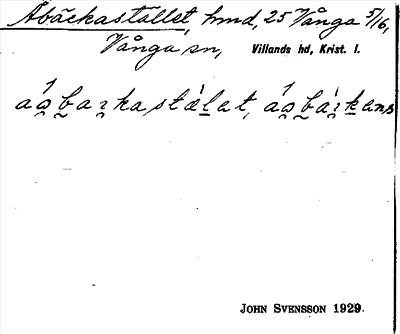 Åbäckastället, hmd, 25 Vånga 5/16,
Vånga sn, Villands hd, Krist. l.
John Svensson 1929.